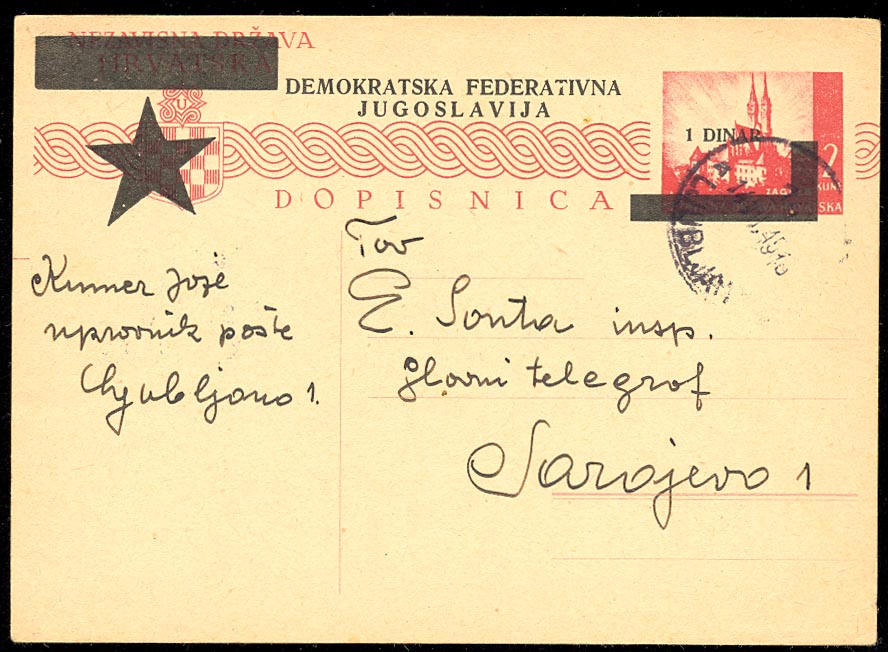 NEZAVISNA DRŽAVA
HRVATSKA
DEMOKRATSKA FEDERATIVNA
JUGOSLAVIJA
U
1 DINAR
2
KUN
ZAG
HRVATSKA
DOPISNICA
LJUBLJANA
Tov
E. Sonta insp.
glavni telegraf
Sarajevo 1
Kumer Jože
upravnik pošte
Ljubljana 1.